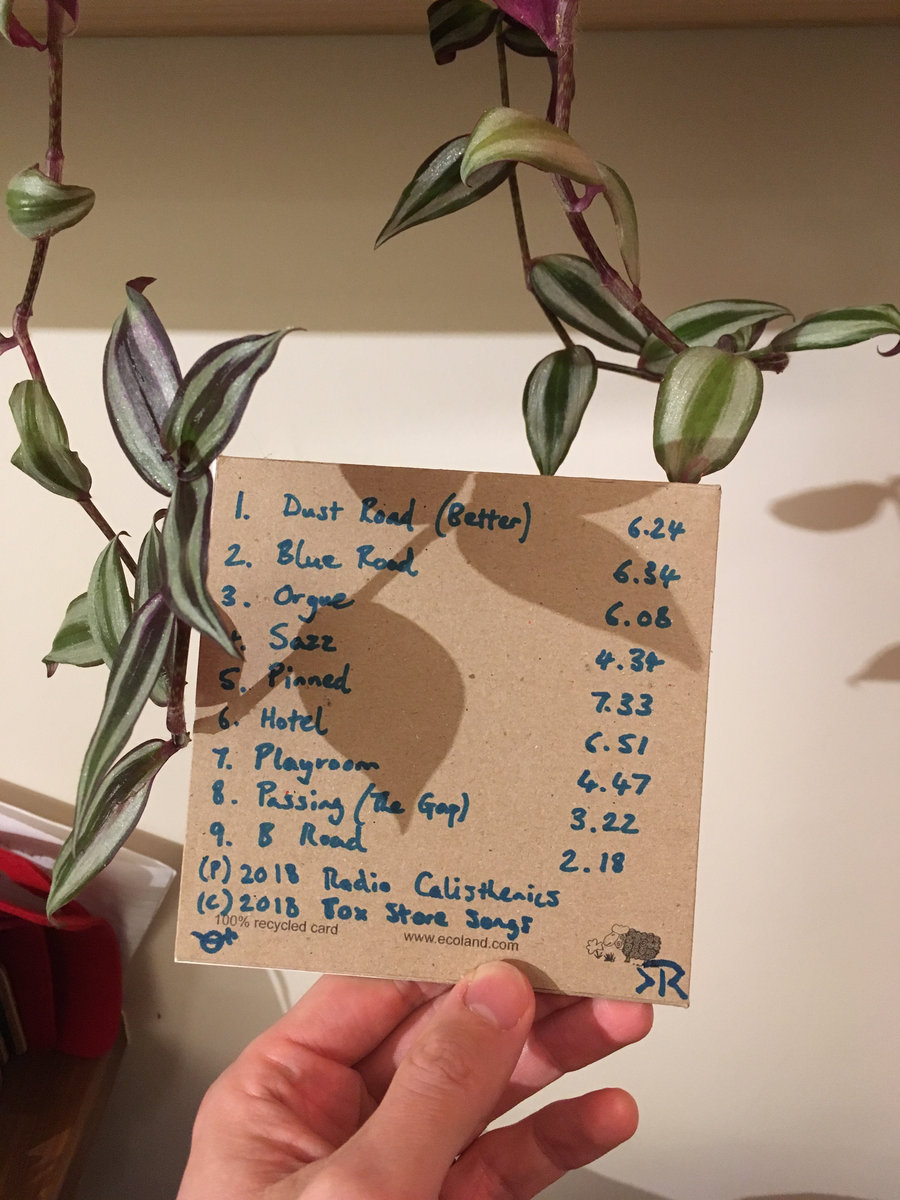 1. Dust Road (Better) 6.24
2. Blue Road 6.34
3. Orgue 6.08
4. Sazz 4.34
5. Pinned 7.33
6. Hotel 6.51
7. Playroom 4.47
8. Passing (The Gap) 3.22
9. B Road 2.18
(P) 2018 Radio Calisthenics
(C) 2018 Tox Store Songs
100% recycled card www.ecoland.com